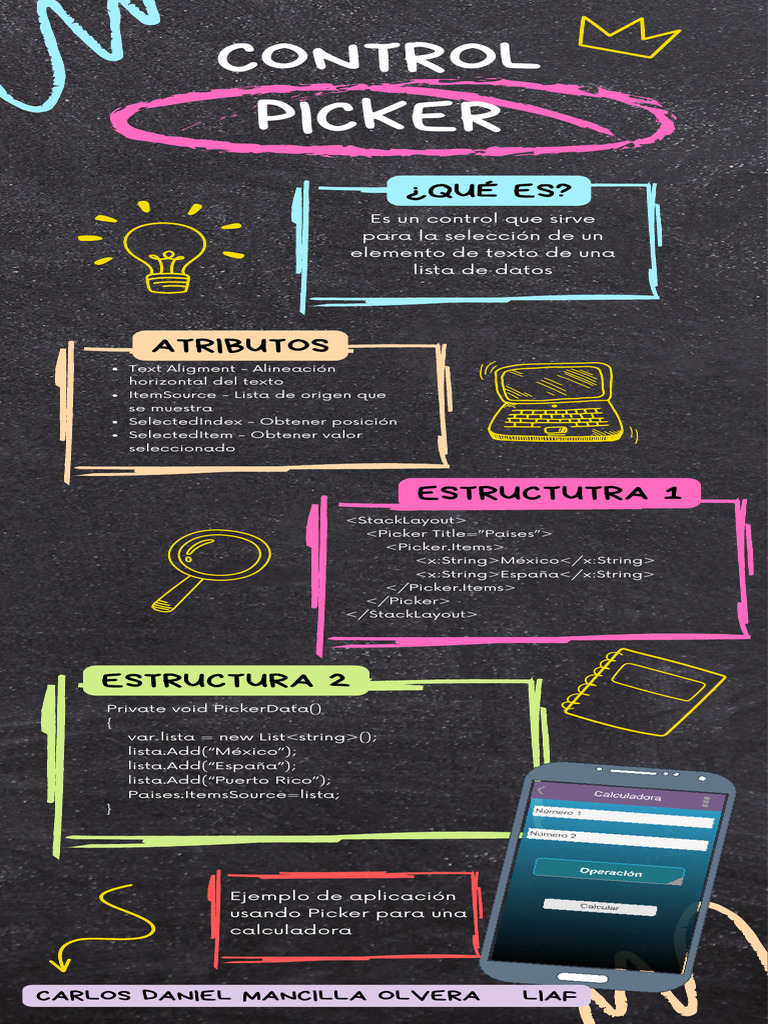 CONTROL
PICKER
¿QUÉ ES?
Es un control que sirve
para la selección de un
elemento de texto de una
lista de datos
ATRIBUTOS
• Text Aligment - Alineación
horizontal del texto
• ItemSource - Lista de origen que
se muestra
• SelectedIndex - Obtener posición
• SelectedItem - Obtener valor
seleccionado
ESTRUCTUTRA 1
<StackLayout>
<Picker Title="Paises">
<Picker.Items>
<x:String>México</x:String>
<x:String>España</x:String>
</Picker.Items>
</Picker>
</StackLayout>
ESTRUCTURA 2
Private void PickerData()
{
var.lista = new List<string>();
lista.Add("México");
lista.Add("España");
lista.Add("Puerto Rico");
Paises.ItemsSource=lista;
}
Calculadora
Número 1
Número 2
Operación
Calcular
Ejemplo de aplicación
usando Picker para una
calculadora
CARLOS DANIEL MANCILLA OLVERA LIAF